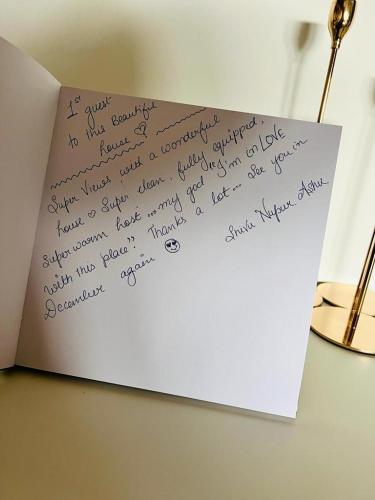 1st guest
to this Beautiful
house ♡
Super Views with a wonderful
house ♡ Super clean, fully equipped,
super warm host...my god "I'm in LOVE
with this place!" Thanks a lot... See you in
December again 😍
Shiva Nupur Ashu